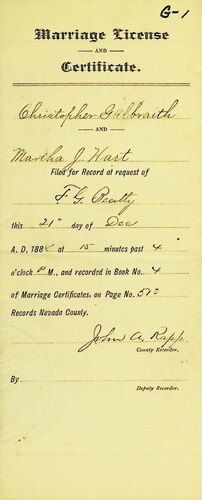 G-1
Marriage License
AND
Certificate.
Christopher Galbraith
AND
Martha J. Hart
Filed for Record at request of
F G. Beatty
this 21" day of Dec
A. D. 188 at 15 minutes past 4
o'clock P M., and recorded in Book No. 4
of Marriage Certificates, on Page No.
Records Nevada County.
John A. Rapp
County Recorder.
By
Deputy Recorder.